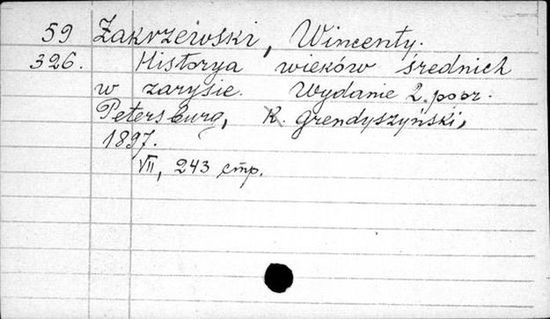 59 Zakrzewski, Wincenty.
326. Historya wieków średnich
w zarysie. Wydanie 2. popr.
Petersburg, K. Grendyszyński,
1897.
VII, 243 стр.